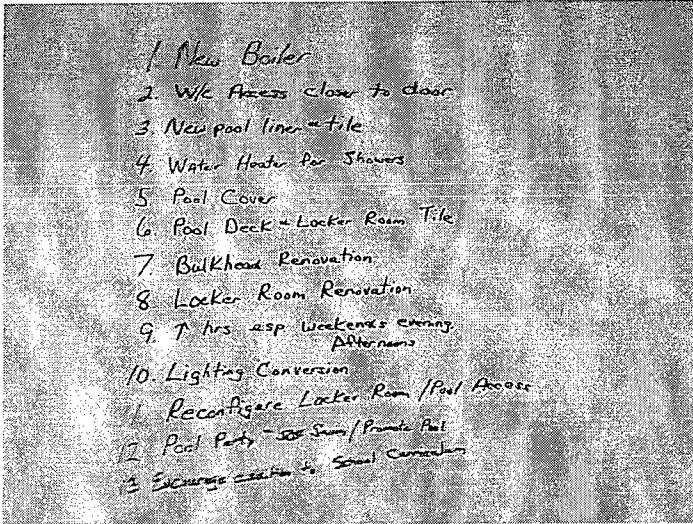 1 New Boiler
2. W/c Access closer to door
3. New pool liner & tile
4. Water Heater for Showers
5 Pool Cover
6. Pool Deck & Locker Room Tile
7 Bulkhead Renovation
8 Locker Room Renovation
9. ↑ hrs esp weekends evening,
Afternoons
10. Lighting Conversion
11 Reconfigure Locker Room / Pool Access
12 Pool Party - Swim / Promote Pool
13 Encourage to School Curriculum